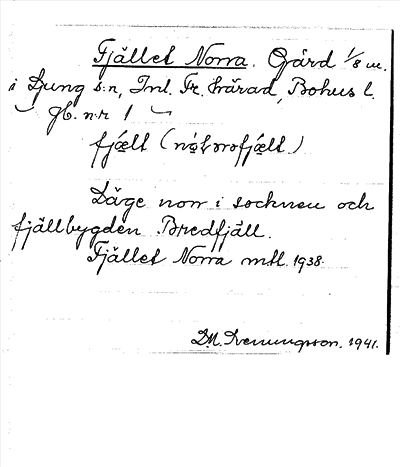 Fjället Norra. Gård 1/8 m.
i Ljung s:n, Inl. Fr. härad, Bohus l.
gb. nr 1
fjælt (nǫ́rrofjælt)
Läge norr i socknen och
fjällbygden Bredfjäll.
Fjället Norra mtl. 1938.
D.M. 1941.